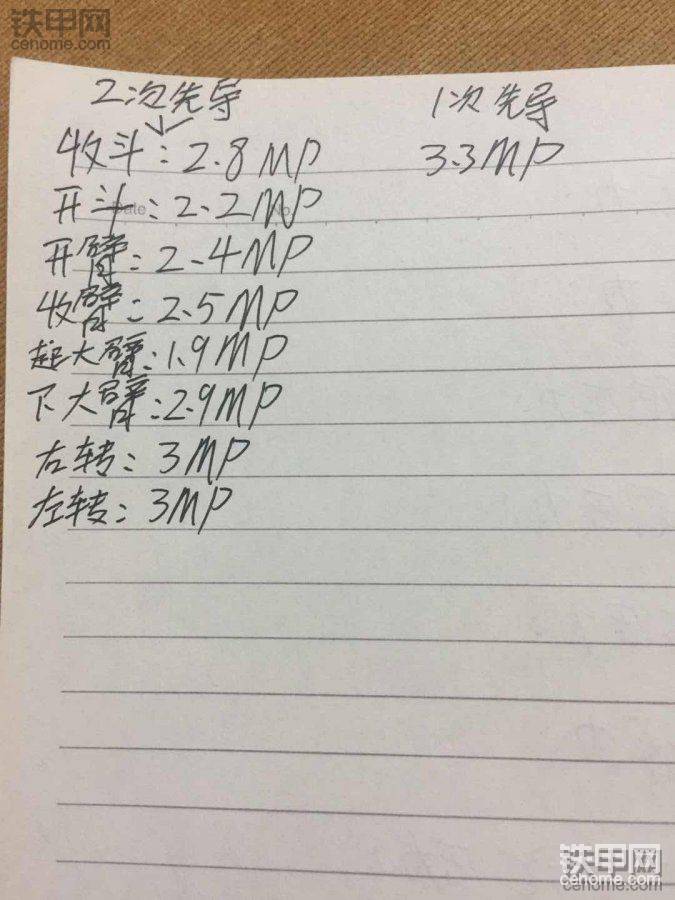 铁甲网
cehome.com
2次先导 1次先导
收斗：2.8MP 3.3MP
开斗：2.2MP
开臂：2.4MP
收臂：2.5MP
起大臂：1.9MP
下大臂：2.9MP
右转：3MP
左转：3MP
铁甲网
cehome.com